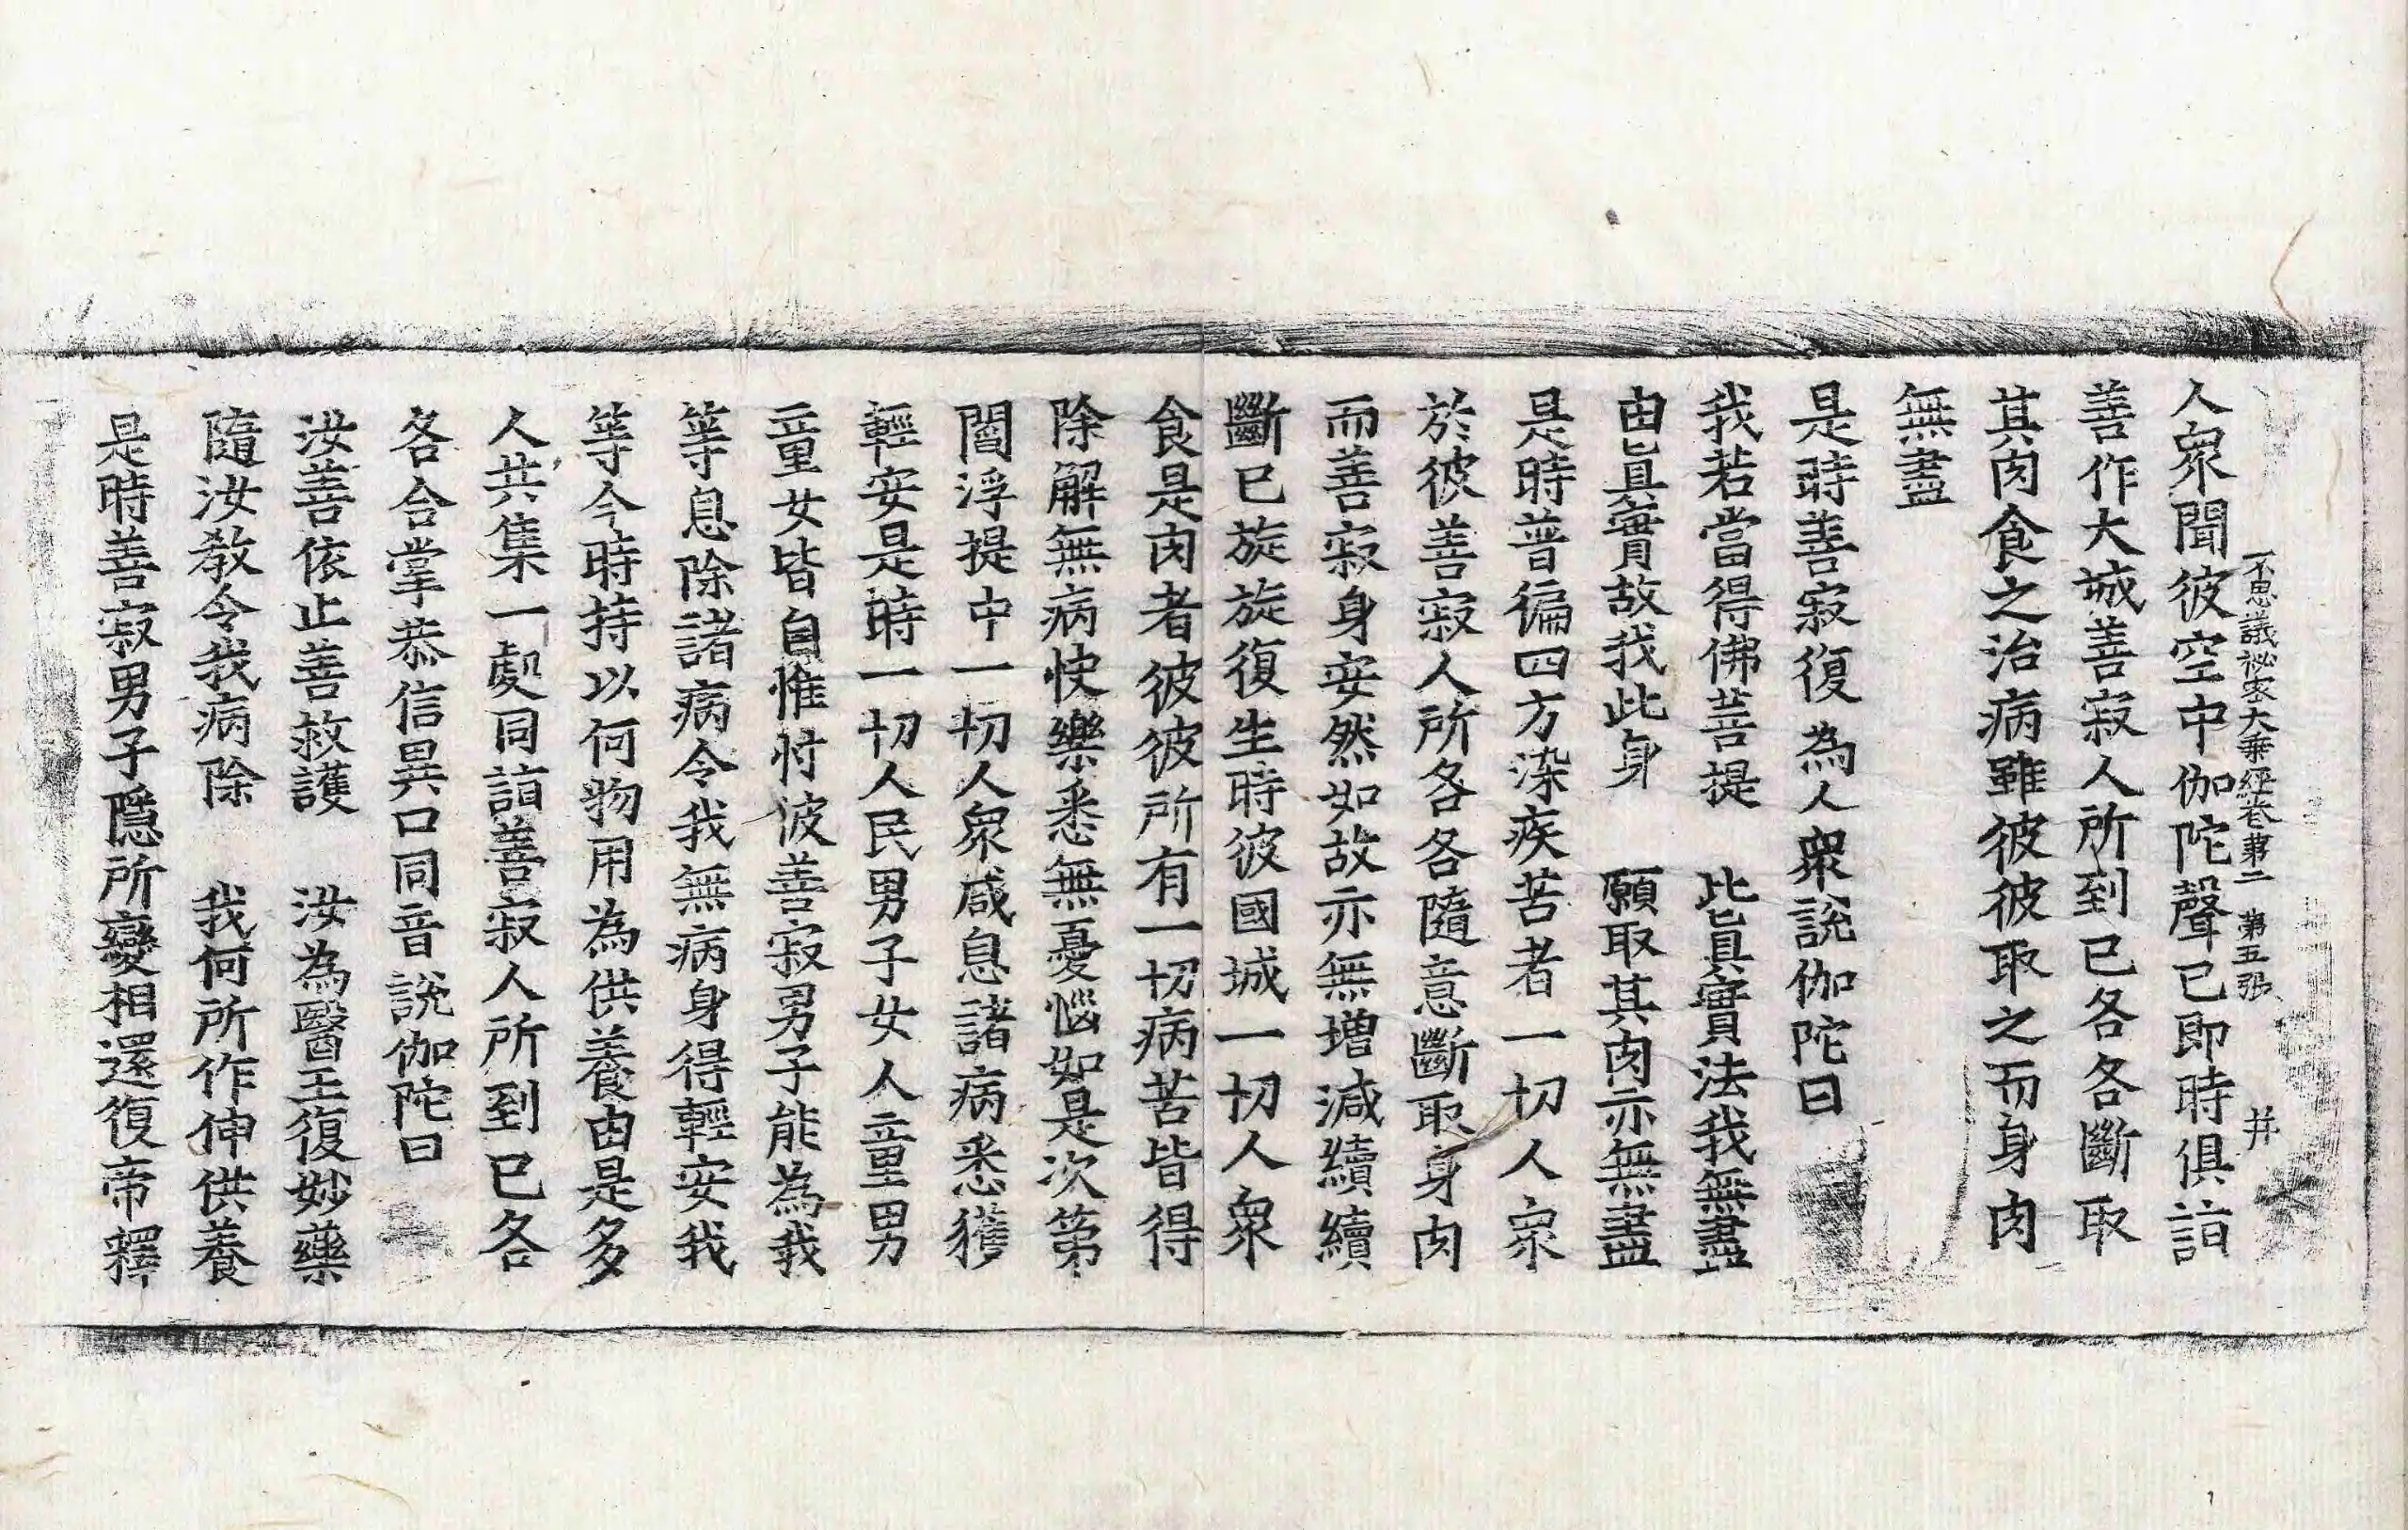 不思議祕密大乘經卷第二 第五張 井
人衆聞彼空中伽陀聲已即時俱詣
善作大城善寂人所到已各各斷取
其肉食之治病雖彼彼取之而身肉
無盡
是時善寂復為人衆說伽陀曰
我若當得佛菩提 此真實法我無盡
由真實故我此身 願取其肉亦無盡
是時普徧四方染疾苦者一切人衆
於彼善寂人所各各隨意斷取身肉
而善寂身安然如故亦無增減續續
斷已旋旋復生時彼國城一切人衆
食是肉者彼彼所有一切病苦皆得
除解無病快樂悉無憂惱如是次第
閻浮提中一切人衆咸息諸病悉獲
輕安是時一切人民男子女人童男
童女皆自惟忖彼善寂男子能為我
等息除諸病令我無病身得輕安我
等今時持以何物用為供養由是多
人共集一處同詣善寂人所到已各
各合掌恭信異口同音說伽陀曰
汝善依止善救護 汝為醫王復妙藥
隨汝教令我病除 我何所作伸供養
是時善寂男子隱所變相還復帝釋